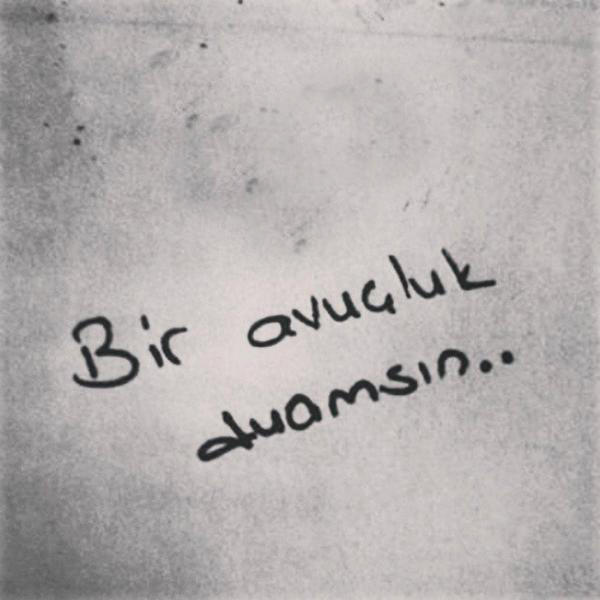 Bir avuçluk
duamsın..